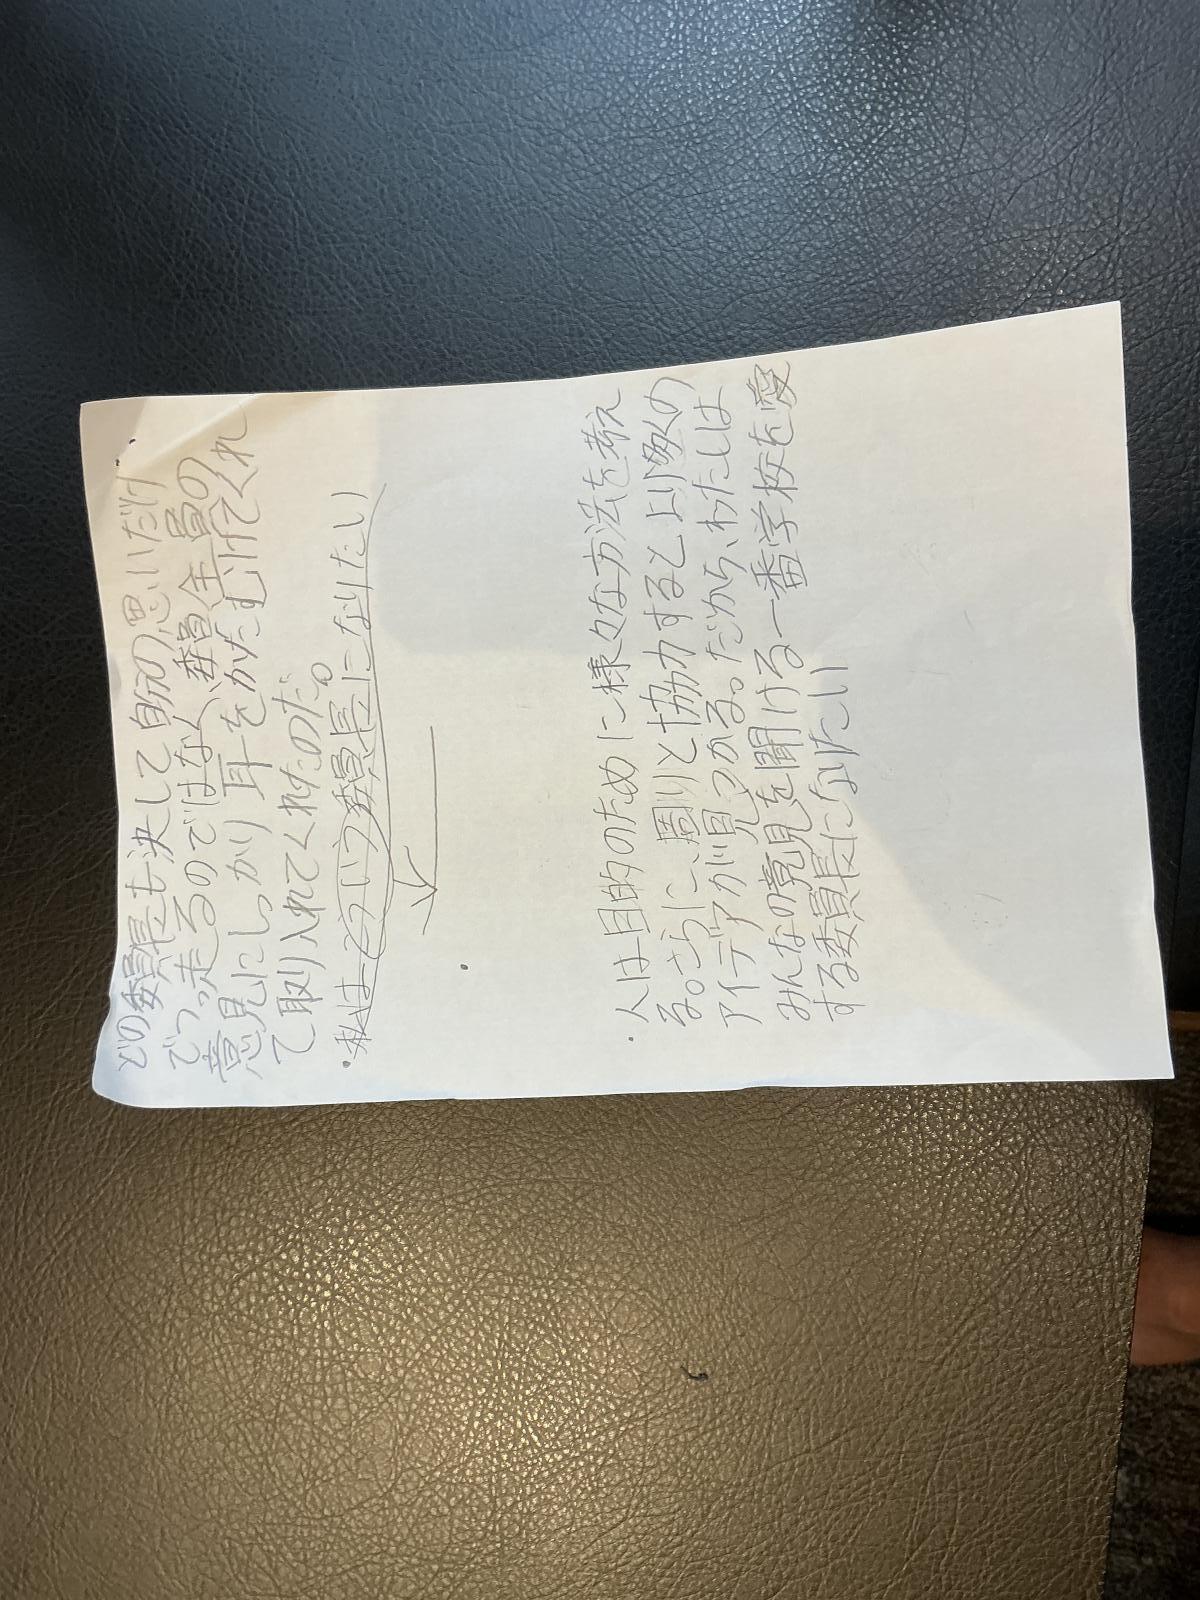 どの委員長も決して自分の思いだけ
でつっ走るのではなく、委員全員の
意見にしっかり耳をかたむけてくれ
て取り入れてくれたのだ。
・私はこういう委員長になりたい
・
・人は目的のために様々な方法を考え
る。さらに、周りと協力するとより多くの
アイデアが見つかる。だから、わたしは
みんなの意見を聞ける一番学校を愛
する委員長になりたい